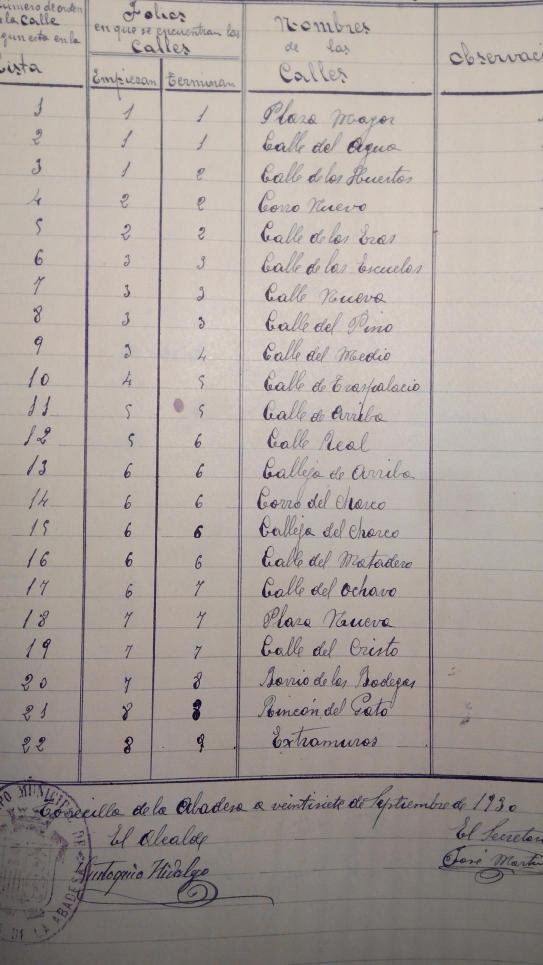 Número de orden
de la Calle
según esta en la
Lista
Folios
en que se encuentran las
Calles
Empiezan Terminan
Nombres
de las
Calles
Observaci
1 1 1 Plaza Mayor
2 1 1 Calle del Agua
3 1 2 Calle de los Huertos
4 2 2 Corro Nuevo
5 2 2 Calle de las Eras
6 3 3 Calle de las Escuelas
7 3 3 Calle Nueva
8 3 3 Calle del Pino
9 3 4 Calle del Medio
10 4 5 Calle de Traspalacio
11 5 5 Calle de Arriba
12 5 6 Calle Real
13 6 6 Calleja de Arriba
14 6 6 Corro del Charco
15 6 6 Calleja del Charco
16 6 6 Calle del Matadero
17 6 7 Calle del Ochavo
18 7 7 Plaza Nueva
19 7 7 Calle del Cristo
20 7 8 Barrio de las Bodegas
21 8 8 Rincón del Gato
22 8 9 Extramuros
Torrecilla de la Abadesa a veintisiete de Septiembre de 1930
El Alcalde
El Secretar
Eutoquio Hidalgo
José Martí
MUNICI
DE LA ABADESA